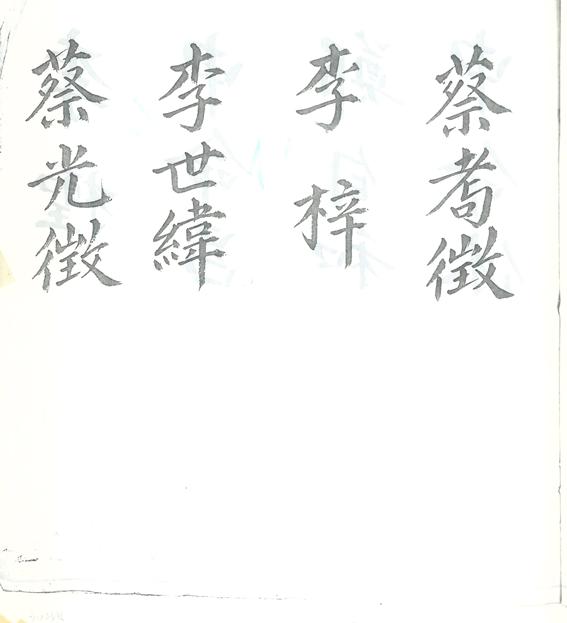 蔡耇徵
李梓
李世緯
蔡光徵